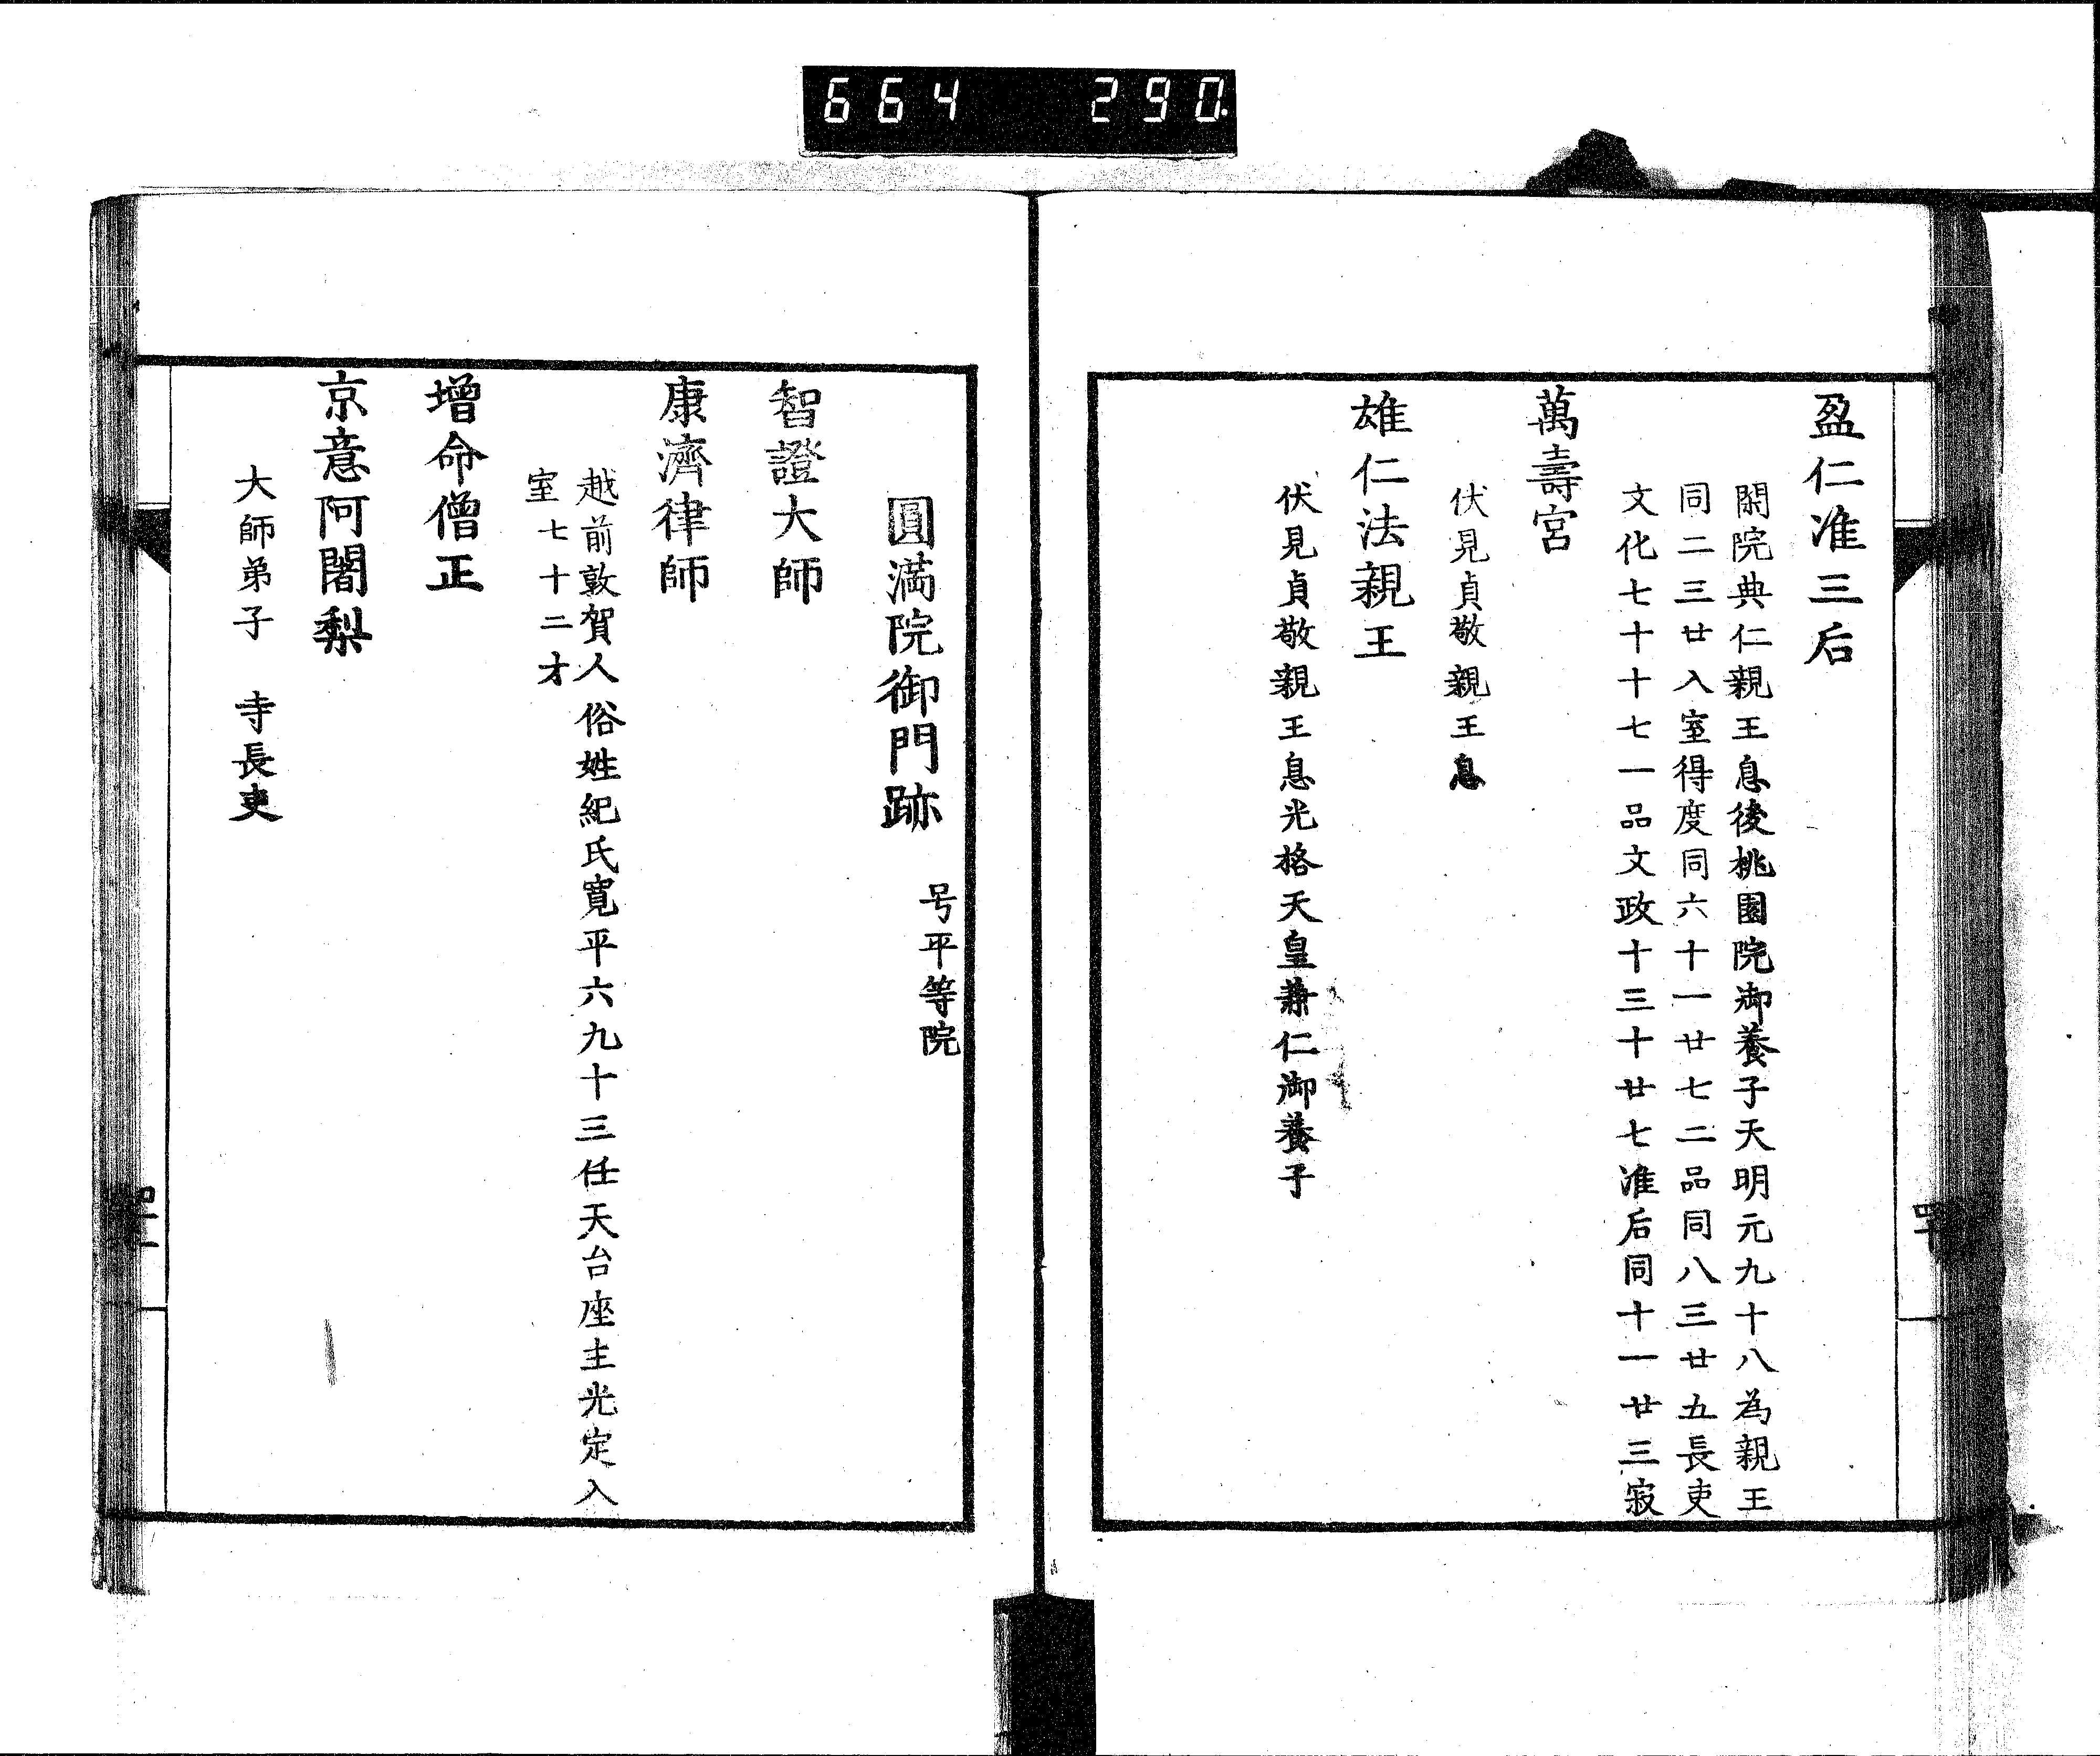 664 290
盈仁准三后
閑院典仁親王息後桃園院御養子天明元九十八為親王
同二三廿入室得度同六十一廿七二品同八三廿五長吏
文化七十十七一品文政十三十廿七准后同十一廿三寂
萬壽宮
伏見貞敬親王息
雄仁法親王
伏見貞敬親王息光格天皇兼仁御養子
圓満院御門跡 号平等院
智證大師
康濟律師
越前敦賀人俗姓紀氏寛平六九十三任天台座主光定入
室七十二才
増命僧正
京意阿闍梨
大師弟子 寺長吏